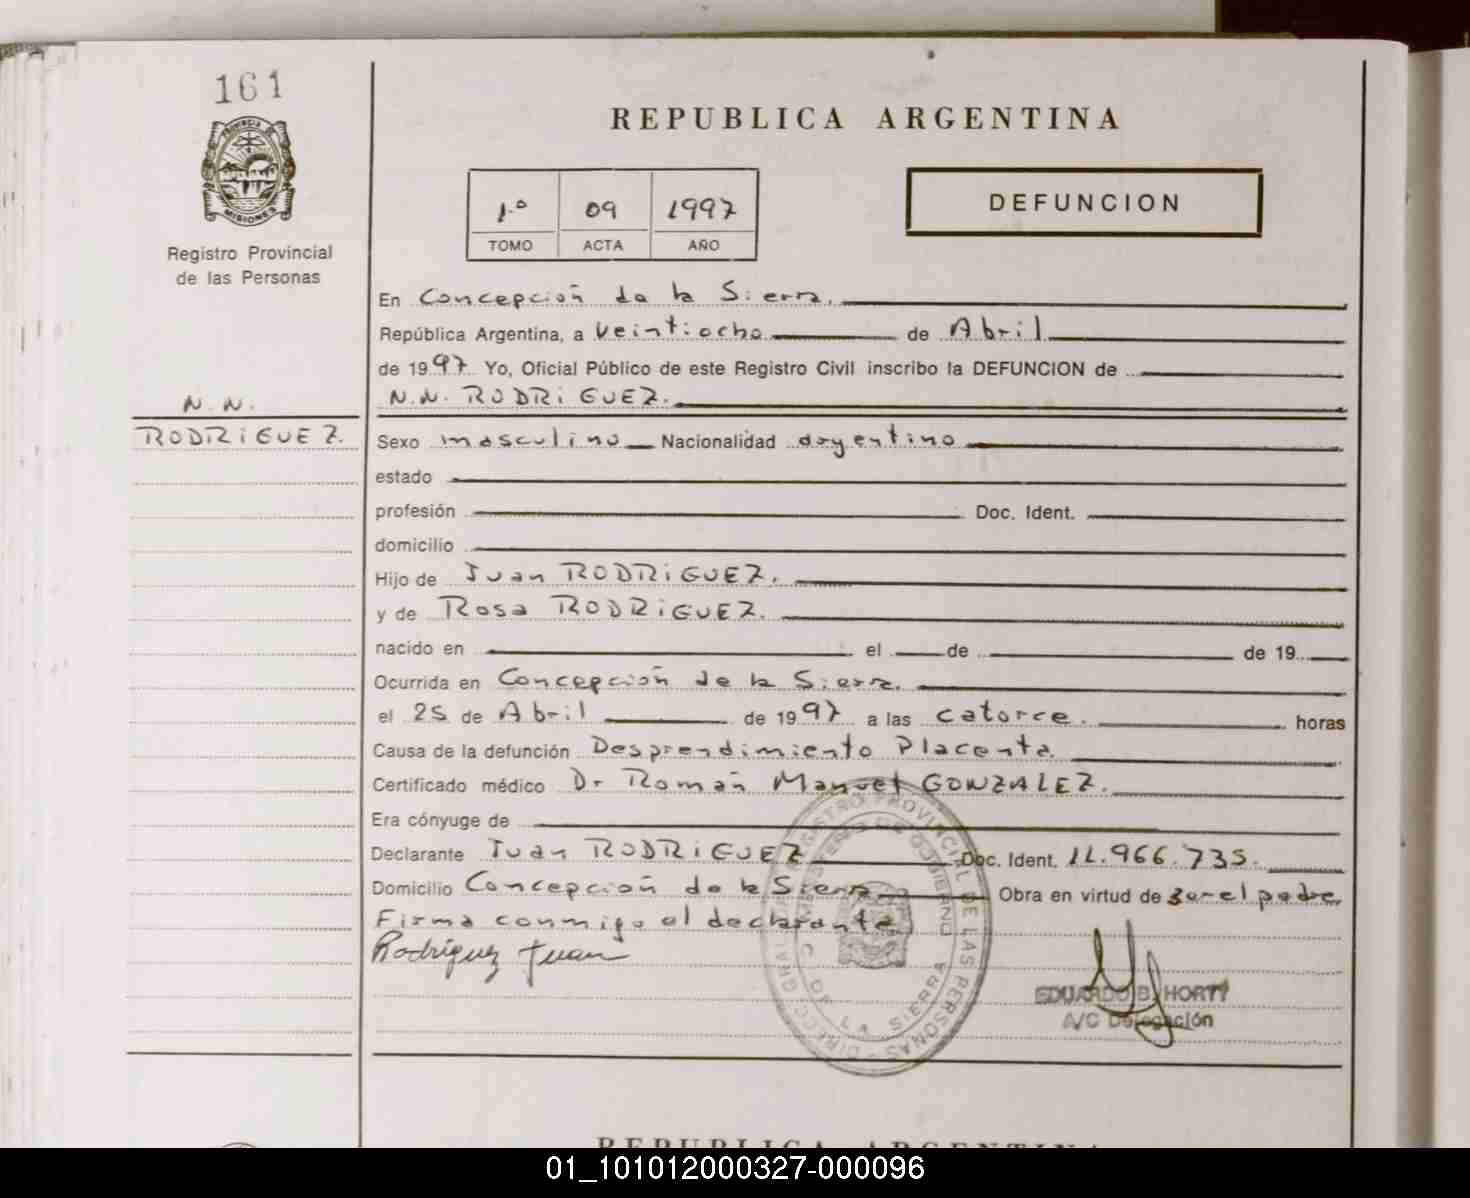 161
REPUBLICA ARGENTINA
1º 09 1997
TOMO ACTA AÑO
DEFUNCION
PROVINCIA DE
MISIONES
Registro Provincial
de las Personas
En Concepción de la Sierra.
República Argentina, a veintiocho de Abril
de 1997 Yo, Oficial Público de este Registro Civil inscribo la DEFUNCION de
N.N. RODRiGUEZ.
N.N.
RODRiGUEZ.
Sexo masculino Nacionalidad argentino
estado
profesión Doc. Ident.
domicilio
Hijo de Juan RODRiGUEZ.
y de Rosa RODRiGUEZ.
nacido en el de de 19
Ocurrida en Concepción de la Sierra.
el 25 de Abril de 1997 a las catorce. horas
Causa de la defunción Desprendimiento Placenta
Certificado médico Dr Román Manuel GONZALEZ.
Era cónyuge de
Declarante Juan RODRiGUEZ Doc. Ident. 11.966.735.
Domicilio Concepción de la Sierra Obra en virtud de ser el padre.
Firma conmigo el declarante
Rodríguez Juan
REGISTRO PROVINCIAL DE LAS PERSONAS - DIRECC. GRAL.
MINISTERIO DE GOBIERNO
DE LA SIERRA
EDUARDO B. HORTT
A/C Delegación
REPUBLICA ARGENTINA
01_101012000327-000096